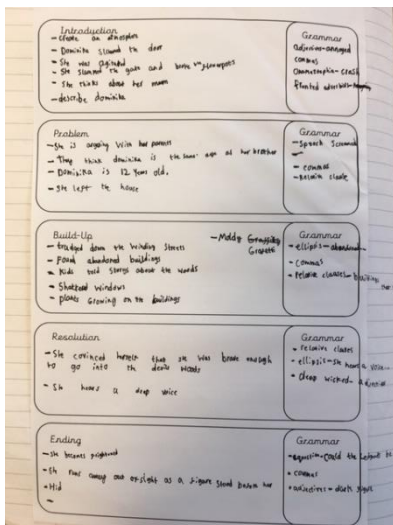 Introduction
- create an atmosphere
- Dominika slammed the door
- She was agitated
- She slammed the gate and
- She thinks about her mum
- describe dominika
Grammar
commas
onomatopoeia - crash
fronted adverbials
Problem
- She is arguing with her parents
- They think dominika is the same age as her brother
- Dominika is 12 years old.
- She left the house
Grammar
- Speech
- commas
- Relative clause
Build-Up
- trudged down the winding streets
- Found abandoned buildings
- Kids told storys about the woods
- Shattered windows
- plants growing on the buildings
- Moldy
Grammar
• ellipsis - abandoned
• commas
• relative clauses - building
Resolution
- She convinced herself that she was brave enough
to go into the devils woods
- She hears a deep voice
Grammar
• relative clauses
• ellipsis - she hears a voice...
• deep wicked -
Ending
- she becomes frightened
- She runs away out of sight as a figure stood before her
- Hid
-
Grammar
could the
• commas
• adjectives -